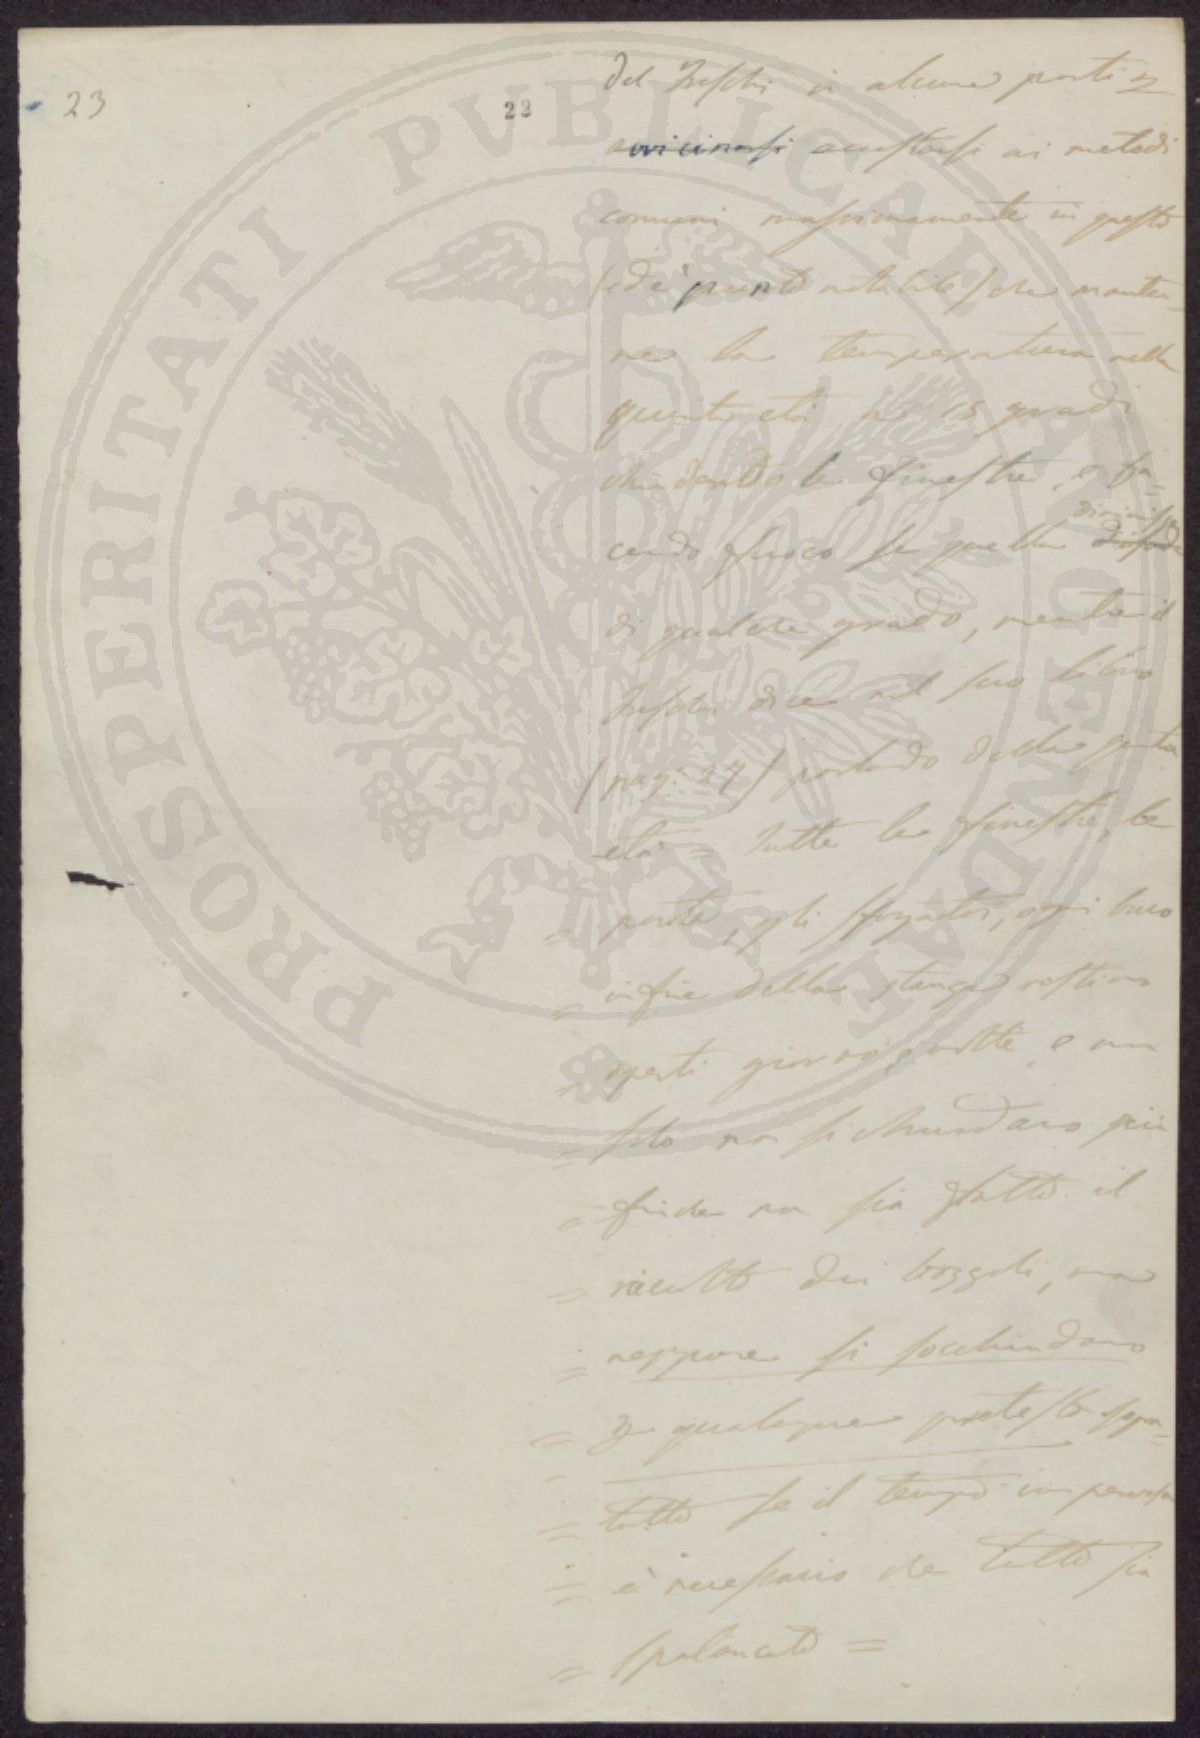 23
22
del Freschi in alcune parti p
avvicinarsi accostarsi ai metodi
comuni massimamente in questo
(ed è punto notabile) che mante-
ne la temperatura nella
quinta età a 15 gradi
chiudendo le finestre, e fa-
cendo fuoco se quella diminuisse
di qualche grado, mentre il
Freschi dice nel suo libro
(pag: 27) parlando della quinta
età = Tutte le finestre, le
= porte, gli sfogatoi, ogni buco
= infine della stanza restino
= aperti giorno e notte, e non
= solo non si chiudano più
= finche non sia fatto il
= raccolto dei bozzoli, ma
= neppure si socchiudano
= p qualunque pretesto sopra-
= tutto se il tempo imperversa
= è necessario che tutto sia
= spalancato =
PROSPERITATI PVBLICAE AVGENDAE